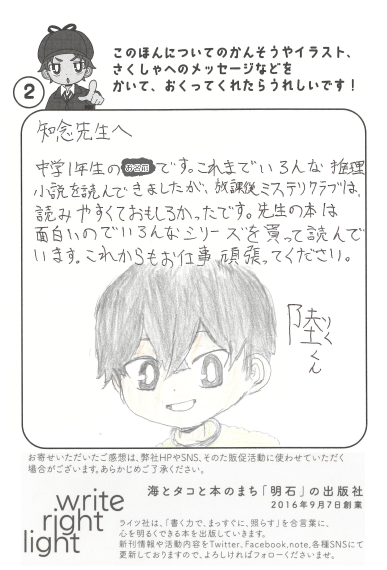 このほんについてのかんそうやイラスト、
さくしゃへのメッセージなどを
かいて、おくってくれたらうれしいです！
2
知念先生へ
中学1年生のお名前です。これまでいろんな推理
小説を読んできましたが、放課後ミステリクラブは、
読みやすくておもしろかったです。先生の本は
面白いのでいろんなシリーズを買って読んで
います。これからもお仕事頑張ってください。
陸くん
りく
お寄せいただいたご感想は、弊社HPやSNS、そのた販促活動に使わせていただく
場合がございます。あらかじめご了承ください。
write
right
light
海とタコと本のまち「明石」の出版社
2016年9月7日創業
ライツ社は、「書く力で、まっすぐに、照らす」を合言葉に、
心を明るくできる本を出版していきます。
新刊情報や活動内容をTwitter、Facebook、note、各種SNSにて
更新しておりますので、よろしければフォローくださいませ。